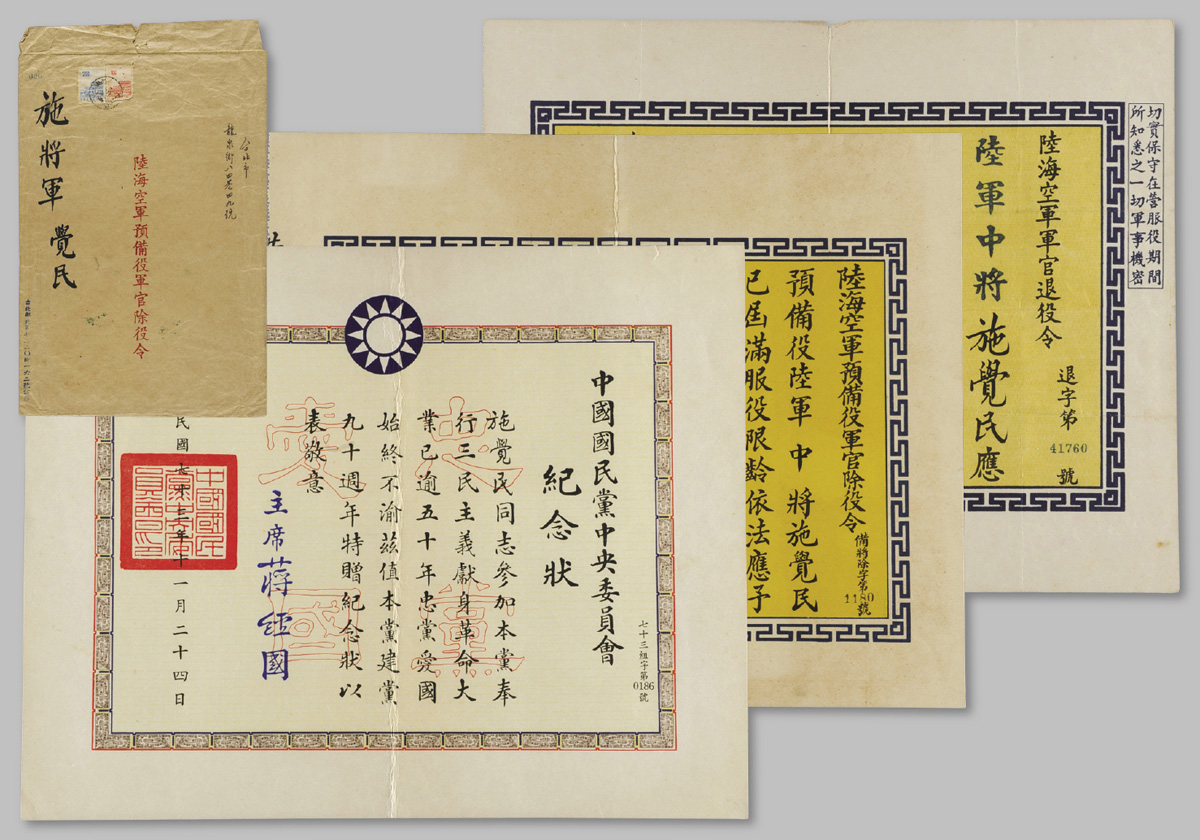 施將軍 覺民
陸海空軍預備役軍官除役令
台北市
龍泉街八四巷四九號
切實保守在營服役期間
所知悉之一切軍事機密
陸海空軍軍官退役令
退字第
41760
號
陸軍中將施覺民應
陸海空軍預備役軍官除役令
備將除字第
1180
號
預備役陸軍中將施覺民
已屆滿服役限齡依法應予
中國國民黨中央委員會
紀念狀
七十三組字第
0186
號
施覺民同志參加本黨奉
行三民主義獻身革命大
業已逾五十年忠黨愛國
始終不渝茲值本黨建黨
九十週年特贈紀念狀以
表敬意
忠黨
愛國
主席蔣經國
十一月二十四日